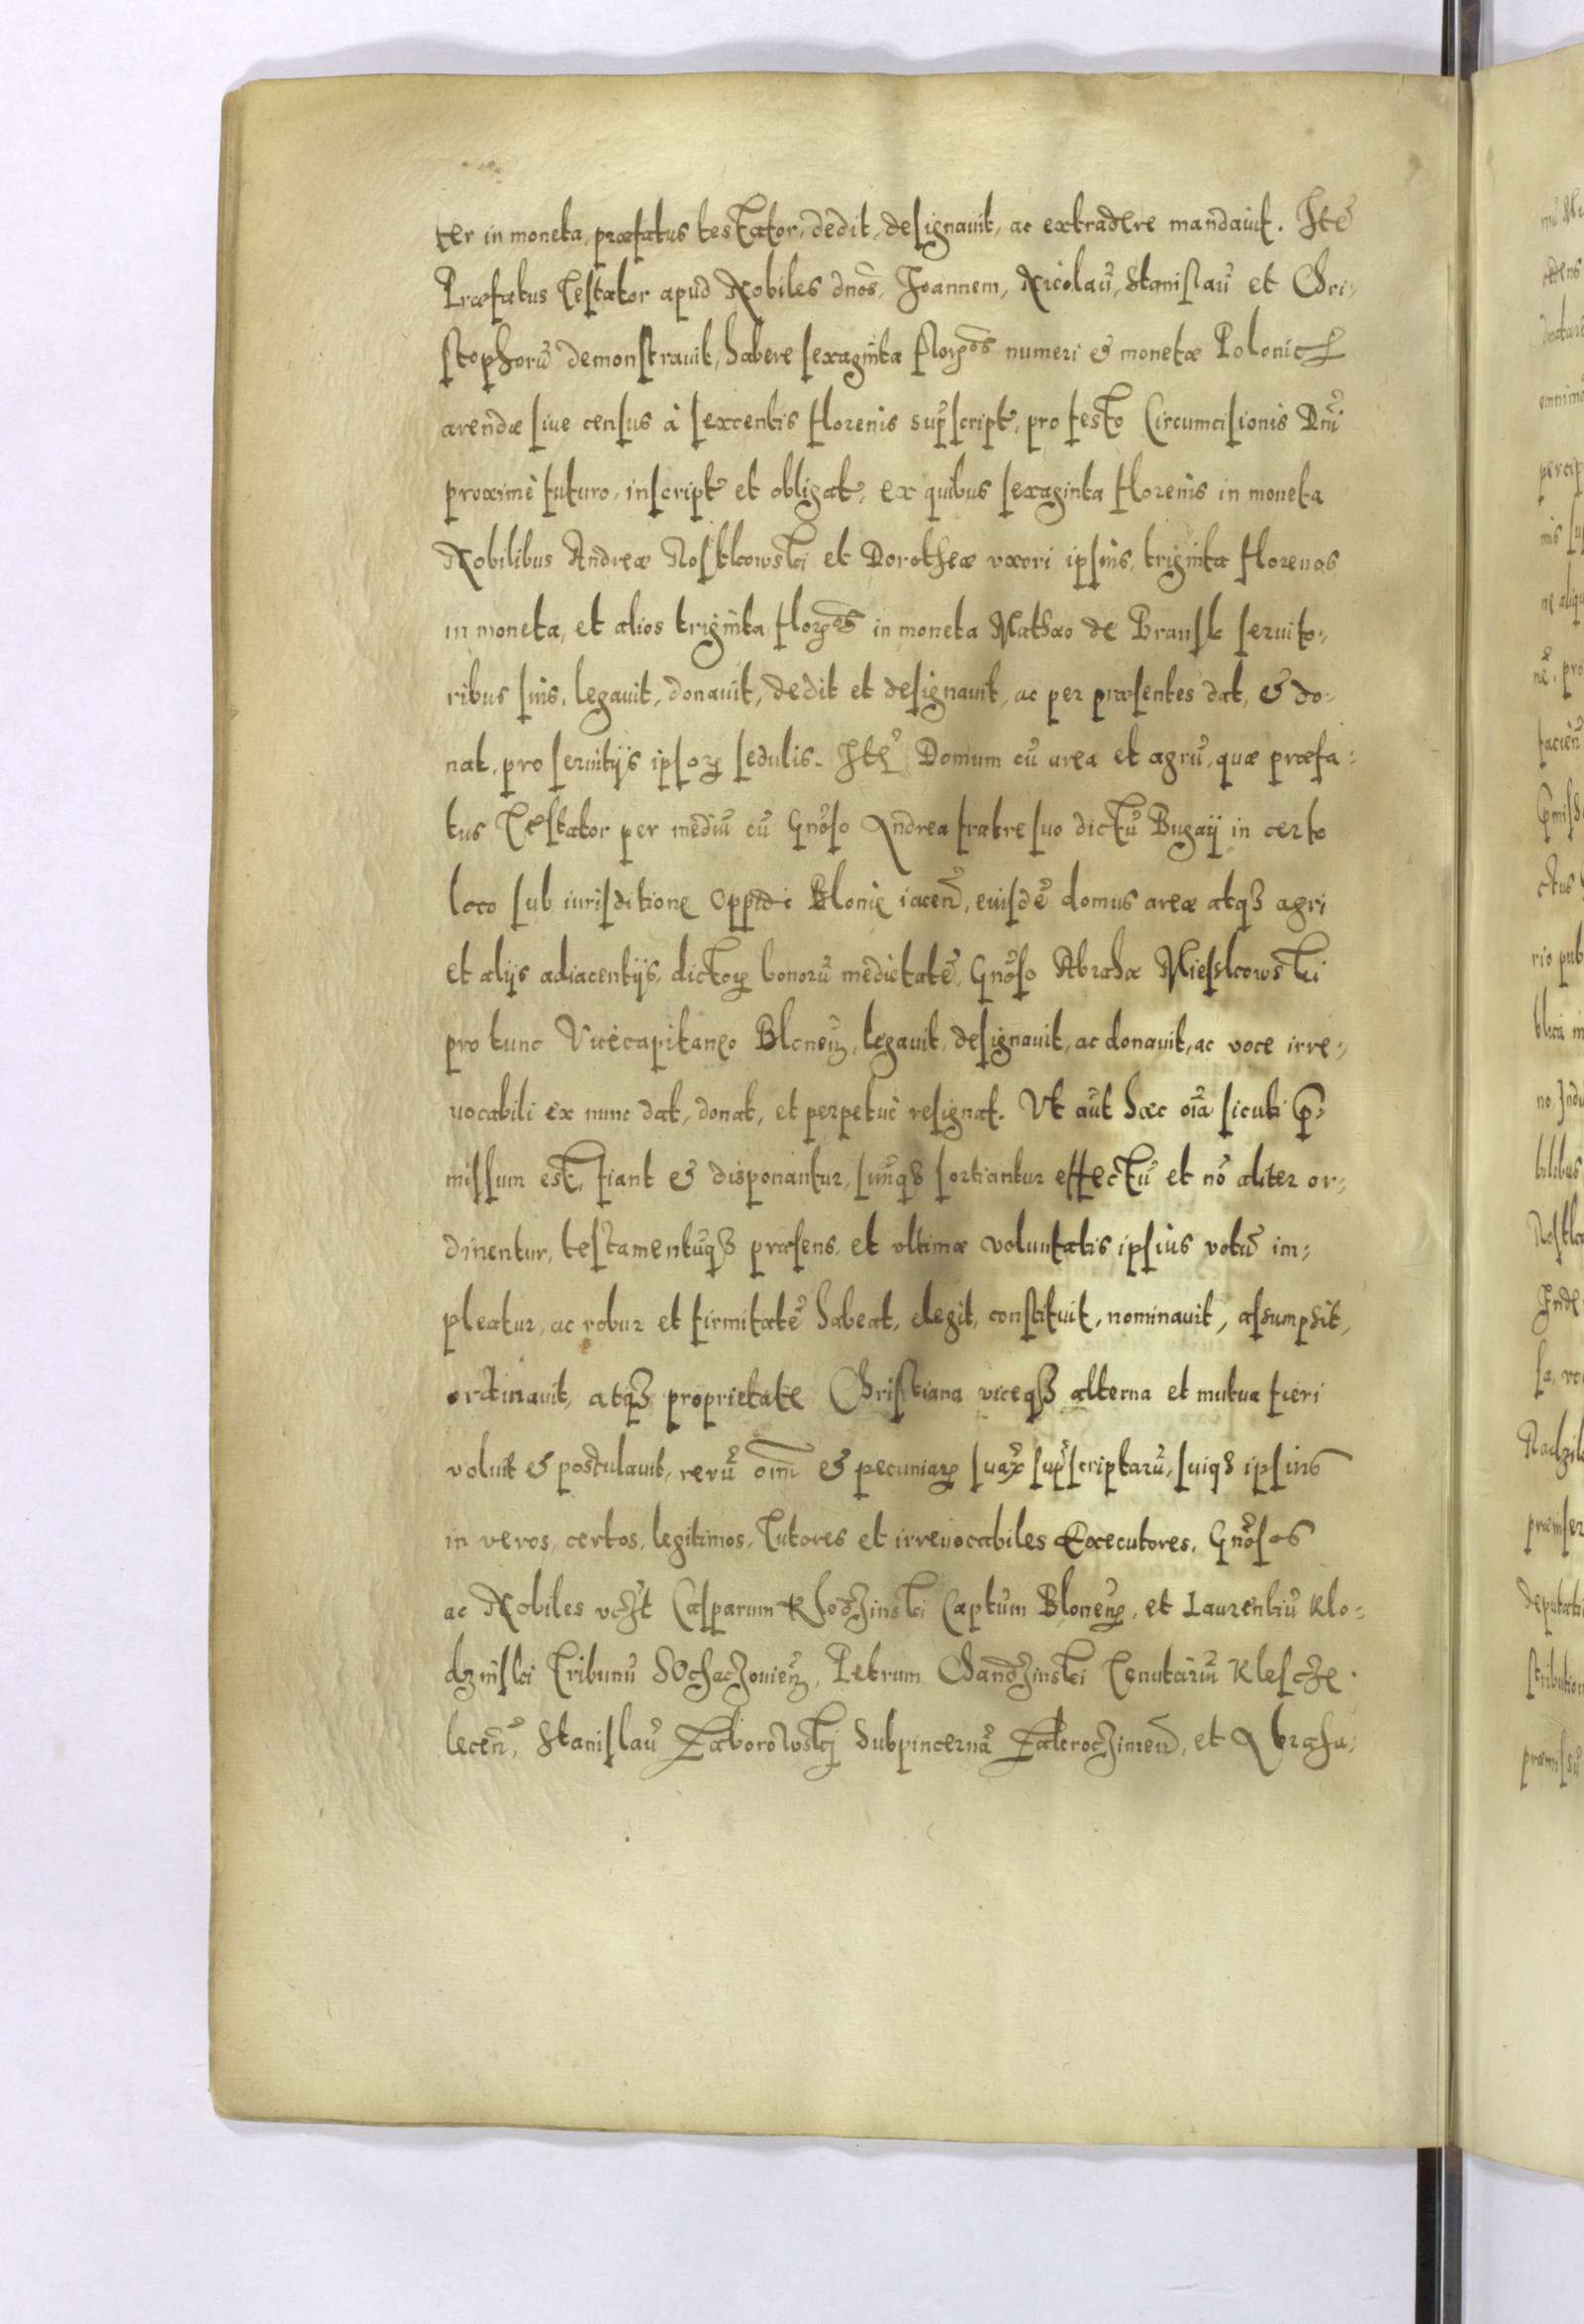 ter in moneta, præfatus testator, dedit, designavit, ac extradere mandavit. Itē
Præfatus Testator apud Nobiles dnōs, Joannem, Nicolaū, Stanislaū et Chri-
stophorū demonstravit, habere sexaginta florꝫos numeri & monetæ Polonic
arendæ sive census à sexcentis florenis sup̄script, pro festo Circumcisionis Dn̄i
proximè futuro, inscript et obligat, ex quibus sexaginta florenis in moneta
Nobilibus Andreæ Nosktowski et Dorotheæ uxori ipsius, triginta florenos
in moneta, et alios triginta florꝫos in moneta Mathæo de Bransk servito-
ribus suis, legavit, donavit, dedit et designavit, ac per præsentes dat, & do-
nat, pro servitijs ipsoꝝ sedulis. Itē Domum cū area et agrū, quæ præfa-
tus Testator per mediū cū Gnōso Andrea fratre suo dictū Bugaÿ in certo
loco sub iurisditione oppidi Blonie iaceñ, euisdē domus areæ atqꝫ agri
et alijs adiacentijs, dictoꝝ bonorū medietatē, Gnōso Abrahæ Mieszkowski
pro tunc Vicecapitaneo Bloneñ, legavit, designavit, ac donavit, ac voce irre-
vocabili ex nunc dat, donat, et perpetuè resignat. Ut aūt hæc oīa sicuti p̄-
missum est, fiant & disponantur, sūūqꝫ sortiantur effectū et nō aliter or-
dinentur, testamentūqꝫ præsens, et ultimæ voluntatis ipsius votū im-
pleatur, ac robur et firmitatē habeat, elegit, constituit, nominavit, assumpsit,
ordinavit, atqꝫ proprietate Christiana viceqꝫ alterna et mutua fieri
voluit & postulavit, rerū oīm & pecuniaꝝ suaꝝ sup̄scriptarū, suiqꝫ ipsius
in veros, certos, legitimos, Tutores et irrevocabiles Executores, Gnōsos
ac Nobiles vczt Casparum Khodzinski Captum Bloneñ, et Laurentiū Klo-
dzinski Tribunū SOchaczovieñ, Petrum Chandzinski Tenutariū Klescze-
leceñ, Stanislaū Zaborowskj Subpincernā Zakrocziméñ, et Abraha-